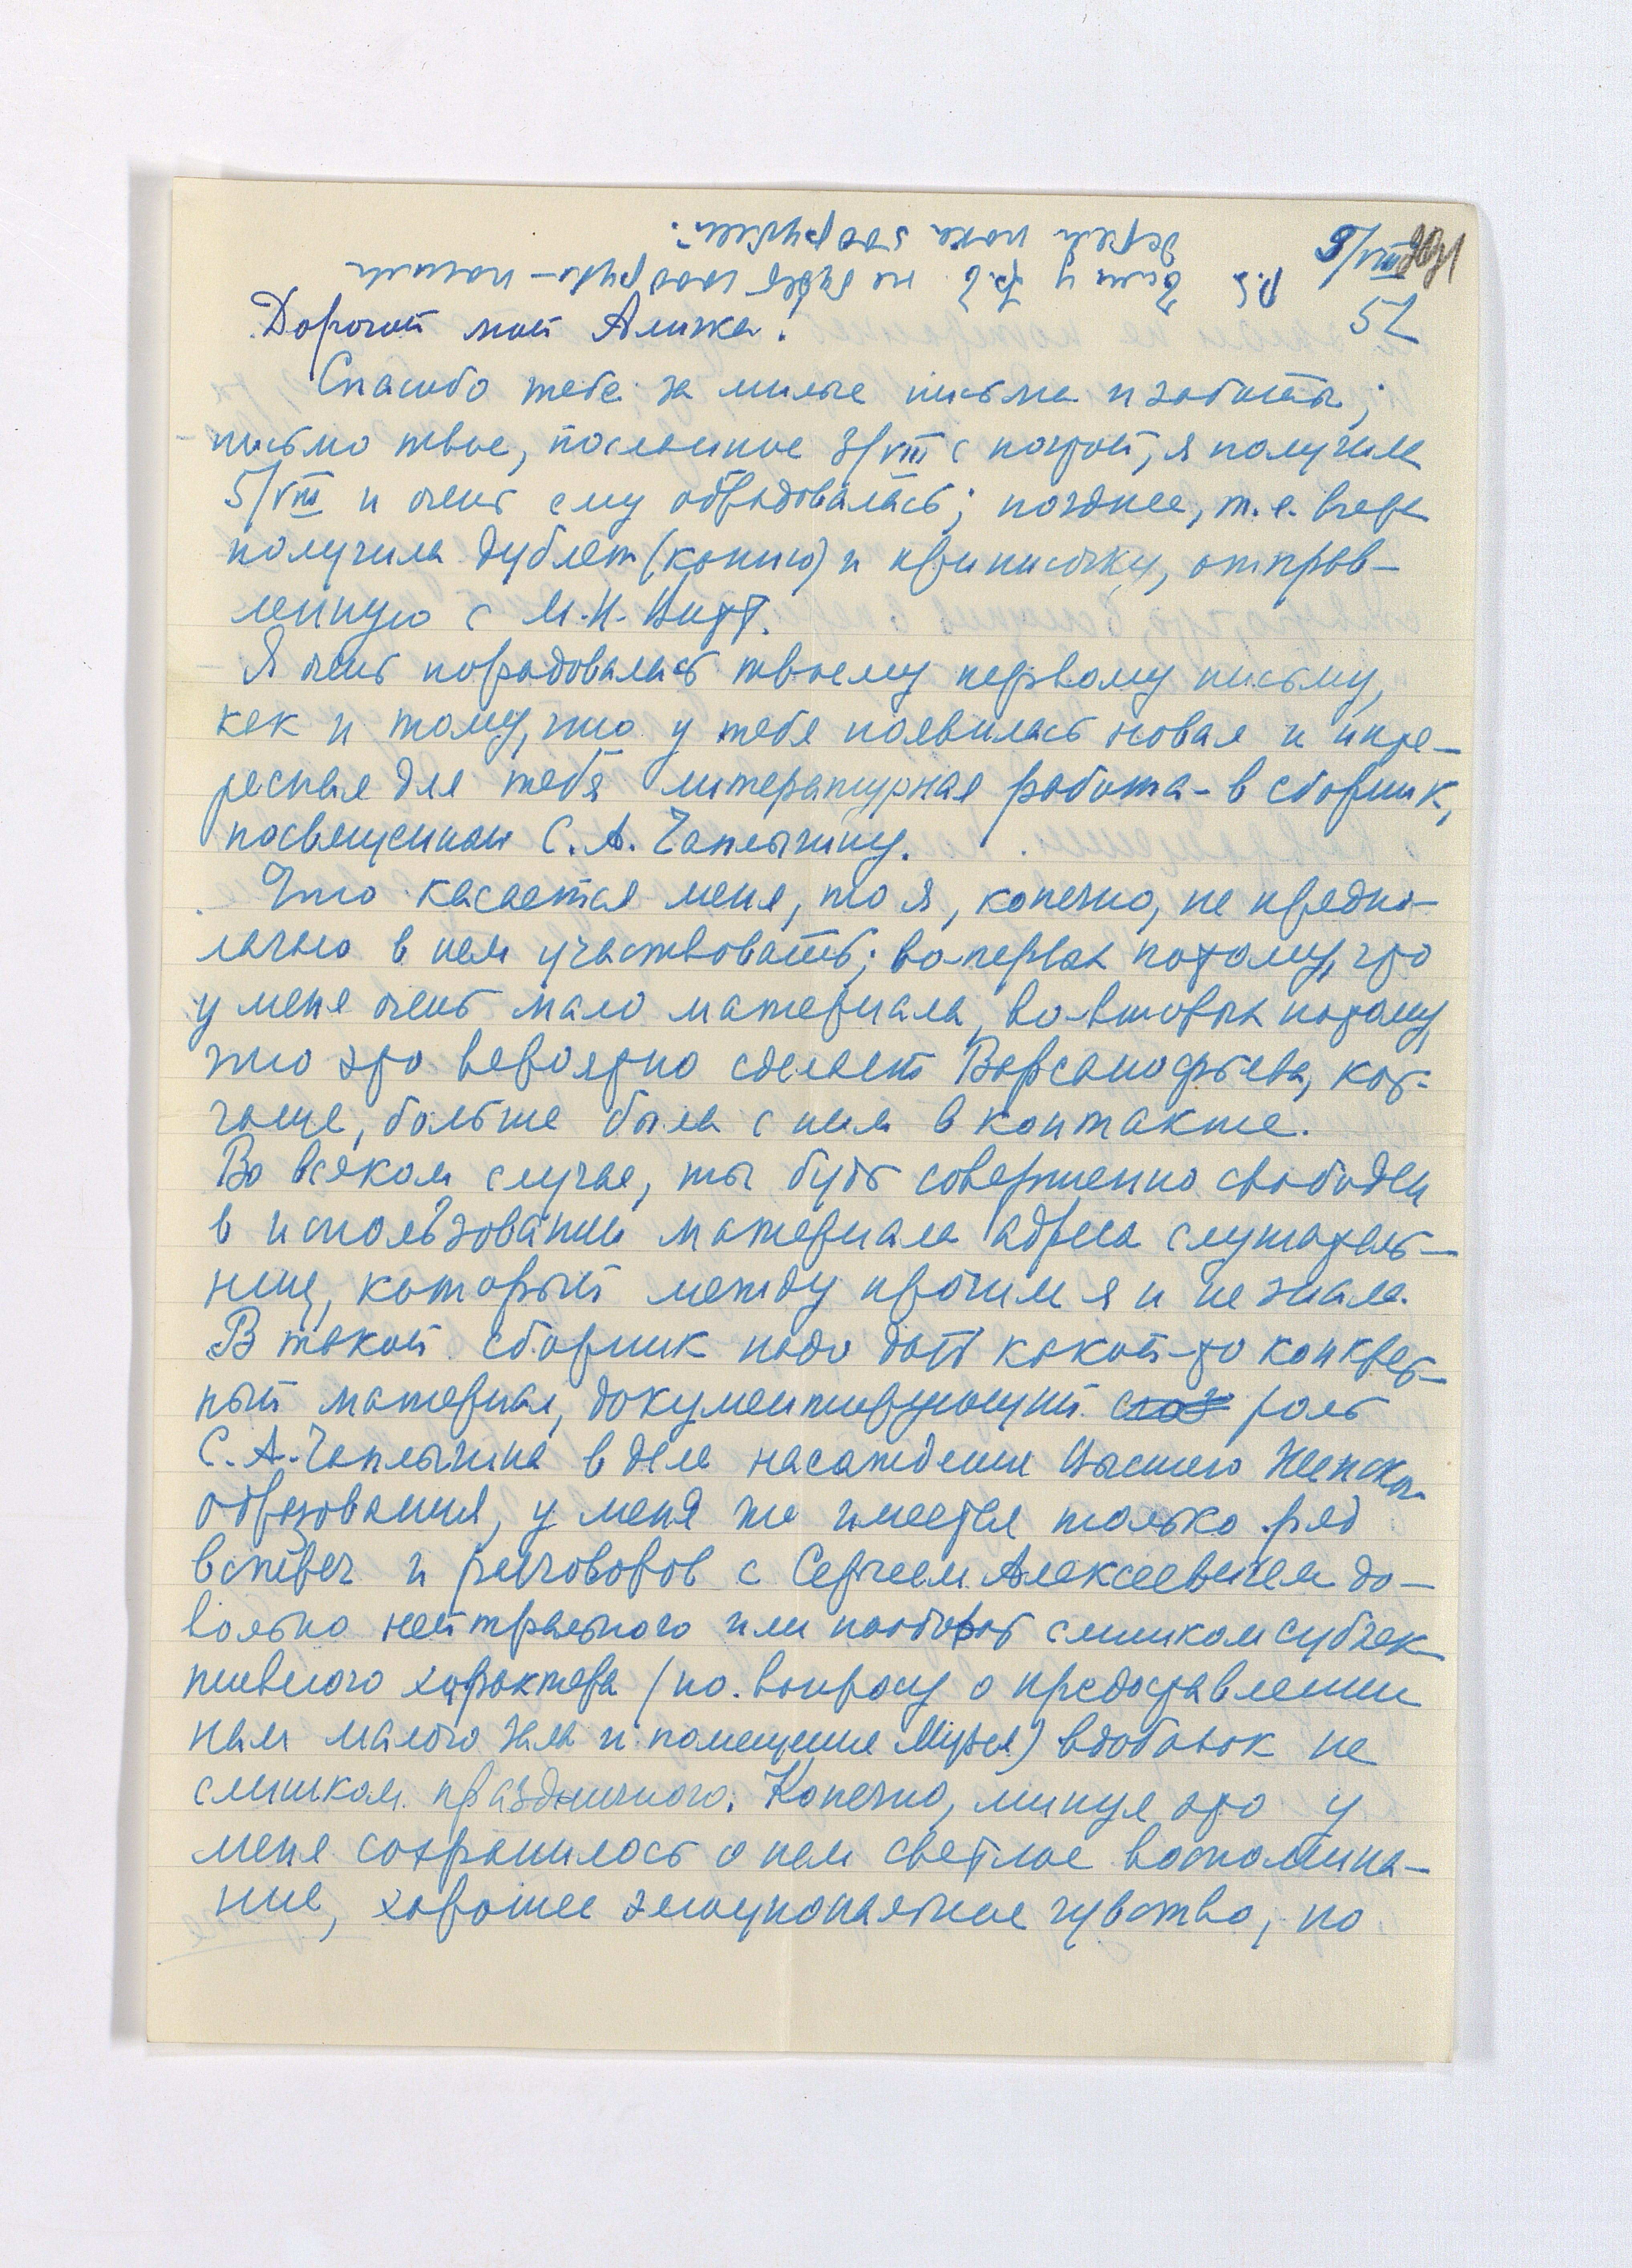 9/VIII
52
P.S. Если у Г. З. не будет
держи пока
Дорогой мой Алинька!
Спасибо тебе за милые письма и заботы;
письмо твое, посланное 3/VIII с почтой, я получила
5/VIII и очень ему обрадовалась; позднее, т.е. вчера
получила дублет (копию) и приписочку, отправ-
ленную с М.Н. Витт.
Я очень порадовалась твоему первому письму,
как и тому, что у тебя появилась новая и инте-
ресная для тебя литературная работа - в сборник,
посвященном С.А. Чаплыгину.
Что касается меня, то я, конечно, не предпо-
лагаю в нем участвовать; во-первых потому, что
у меня очень мало материала, во-вторых потому,
что это вероятно сделает Варсанофьева, кот.
чаще, больше была с ним в контакте.
Во всяком случае, ты будь совершенно свободен
в использовании материала адреса слушатель-
ниц, который между прочим я и не знала.
В такой сборник надо дать какой-то конкрет-
ный материал, документирующий роль
С.А. Чаплыгина в деле насаждения Высшего Женского
образования, у меня же имеется только ряд
встреч и разговоров с Сергеем Алексеевичем до-
вольно нейтрального или наоборот слишком субъек
тивного характера (по вопросу о предоставлении
нам малого зала и помещения Музея) вдобавок не
слишком праздничного. Конечно, минуя это у
меня сохранилось о нем светлое воспомина-
ние, хорошее эмоциональное чувство, но